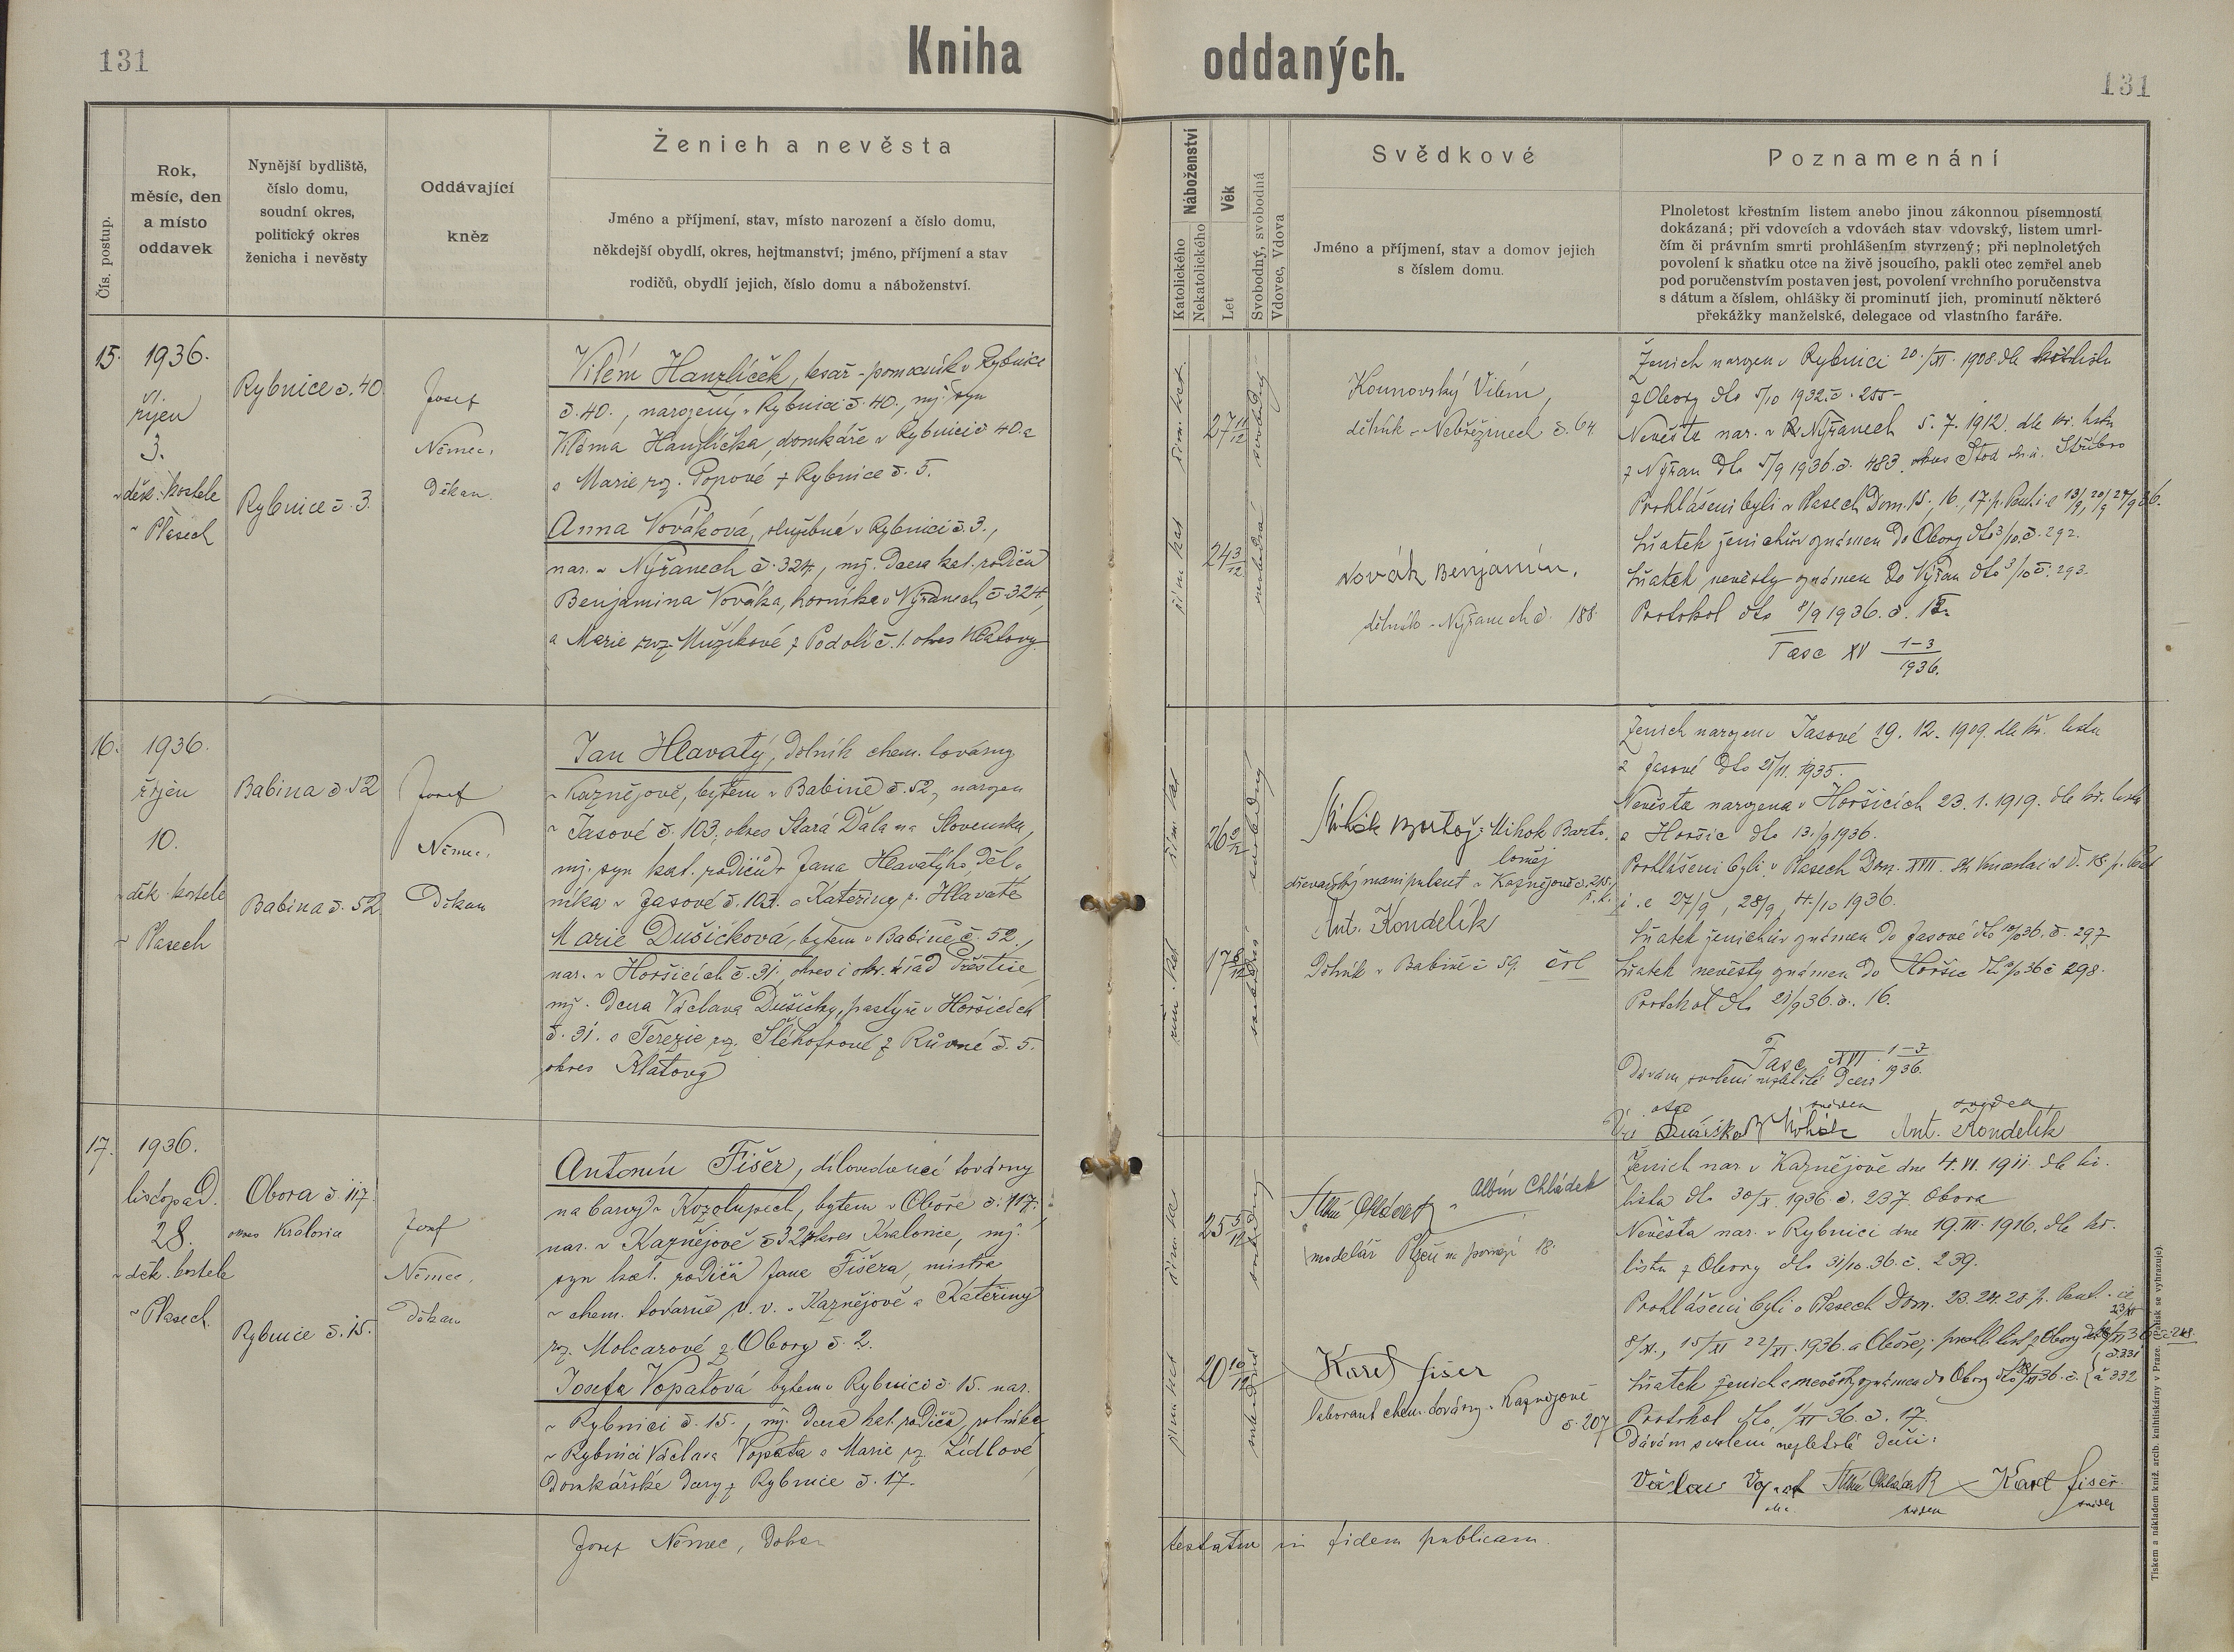 131
Kniha oddaných.
131
Čís. postup.
Rok,
měsíc, den
a místo
oddavek
Nynější bydliště,
číslo domu,
soudní okres,
politický okres
ženicha i nevěsty
Oddávající
kněz
Ženich a nevěsta
Jméno a příjmení, stav, místo narození a číslo domu,
někdejší obydlí, okres, hejtmanství; jméno, příjmení a stav
rodičů, obydlí jejich, číslo domu a náboženství.
Náboženství
Katolického
Nekatolického
Věk
Let
Svobodný, svobodná
Vdovec, Vdova
Svědkové
Jméno a příjmení, stav a domov jejich
s číslem domu.
Poznamenání
Plnoletost křestním listem anebo jinou zákonnou písemností
dokázaná; při vdovcích a vdovách stav vdovský, listem umrl-
čím či právním smrti prohlášením stvrzený; při neplnoletých
povolení k sňatku otce na živě jsoucího, pakli otec zemřel aneb
pod poručenstvím postaven jest, povolení vrchního poručenstva
s dátum a číslem, ohlášky či prominutí jich, prominutí některé
překážky manželské, delegace od vlastního faráře.
15.
1936.
říjen
3.
v děk. kostele
v Plasech
Rybnice č. 40
Rybnice č. 3.
Josef
Němec,
Děkan.
Vilém Hanzlíček, tesař-pomocník v Rybnici
č. 40., narozený v Rybnici č. 40., mj. syn
Viléma Hanzlíčka, domkáře v Rybnici č 40. a
a Marie roz. Popové z Rybnice č. 5.
Anna Nováková, služebná v Rybnici č. 3.,
nar. v Nýřanech č. 324., mj. dcera kat. rodičů
Benjamina Nováka, horníka v Nýřanech č. 324,
a Marie roz. Mužíkové z Podolí č. 1. okres Klatovy
řím. kat.
27 11/12
svobodný
řím. kat
24 3/12
svobodná
Kounovský Vilém,
dělník v Nebřezinech č. 64.
Novák Benjamin,
dělník v Nýřanech č. 188
Ženich narozen v Rybnici 20./XI. 1908 dle listu
z Obory dto 5/10 1932. č. 255-
Nevěsta nar. v Nýřanech 5. 7. 1912. dle kř. listu
z Nýřan dto 5/9 1936. č. 483. okres Stod Stříbro
Prohlášeni byli v Plasech Dom. 15., 16., 17. p. Pent. i. e 13/9, 20/9 27/9 36.
Sňatek ženichův oznámen do Obory dto 3/10. č. 292.
Sňatek nevěsty oznámen do Nýřan dto 3/10 č. 293.
Protokol dto 8/9 1936. č. 15.
Fasc XV 1-3/1936.
16.
1936.
říjen
10.
v děk. kostele
v Plasech
Babina č. 52
Babina č. 52
Josef
Němec,
Děkan
Jan Hlavatý, dělník chem. továrny
v Kaznějově, bytem v Babině č. 52, narozen
v Jasové č. 103, okres Stará Ďala na Slovensku,
mj. syn kat. rodičů Jana Hlavatýho, děl-
níka v Jasové č. 103. a Kateřiny r. Hlavaté
Marie Dušičková, bytem v Babině č. 52.,
nar. v Horšicích č. 31., okres i okr. úřad Přeštice,
mj. dcera Václava Dušičky, pastýře v Horšicích
č. 31. a Terezie roz. z č. 5.
okres Klatovy
řím. kat
svobodný
řím. kat
svobodná
Mihok Bartoloměj
dřevařský manipulant v Kaznějově č. 215,
Ant. Kondelík
Dělník v Babině č 59. čsl
Ženich narozen v Jasové 19. 12. 1909. dle kř. listu
z Jasové dto 21/11. 1935.
Nevěsta narozena v Horšicích 23. 1. 1919. dle kř. listu
z Horšic dto 13./9 1936.
Prohlášeni byli v Plasech Dom. XVII.
i. e 27/9, 28/9, 4./10 1936.
Sňatek ženichův oznámen do Jasové dto 10/10 36. č. 297
Sňatek nevěsty oznámen do Horšic dto 10/10 36 č 298.
Protokol dto 21/9 36. č. 16.
Fasc XVI 1-3/1936.
Dávám svolení nezletilé dceři
otec svědek svědek
Dušička Mihok Ant. Kondelík
17.
1936.
listopad.
28.
v děk. kostele
v Plasech.
Obora č. 117.
okres Kralovice
Rybnice č. 15.
Josef
Němec,
Děkan
Antonín Fišer, dílovedoucí továrny
na barvy v Kozolupech, bytem v Oboře č. 117.
nar. v Kaznějově č 32 okres Kralovice, mj.
syn kat. rodičů Jana Fišera, mistra
v chem. továrně v. v. v Kaznějově a Kateřiny
roz. Molcarové z Obory č. 2.
Josefa Vopatová bytem v Rybnici č. 15. nar.
v Rybnici č. 15., mj. dcera kat. rodičů, rolníka
v Rybnici Václava Vopata a Marie roz. Lídlové
Domkářské dcery z Rybnice č. 17.
25 5/12
svobodný
řím kat
20 10/12
svobodná
Albín Chládek
modelář Plzeň 18.
Karel Fišer
laborant chem. továrny v Kaznějově
č. 207
Ženich nar. v Kaznějově dne 4. VI. 1911. dle kř.
listu dto 30/X. 1936. č. 237. Obora
Nevěsta nar. v Rybnici dne 19. III. 1916. dle kř.
listu z Obory dto 31/10. 36. č. 239.
Prohlášeni byli v Plasech Dom. 23. 24. 25. p. Pent. i e
8/XI., 15/XI 22/XI. 1936. a Oboře, prohl. list z Obory č. 248.
Sňatek ženich a nevěsty oznámen do Obory dto 36. č. č. 331 a 332
Protokol dto 1/XI 36. č. 17.
Dávám svolení nezletilé dceři:
Václav Vopat Albín Chládek Karel Fišer.
otec svědek svědek
Josef Němec, Děkan
testatur in fidem publicam.
Tiskem a nákladem kníž. arcib. knihtiskárny v Praze. (Přetisk se vyhrazuje).